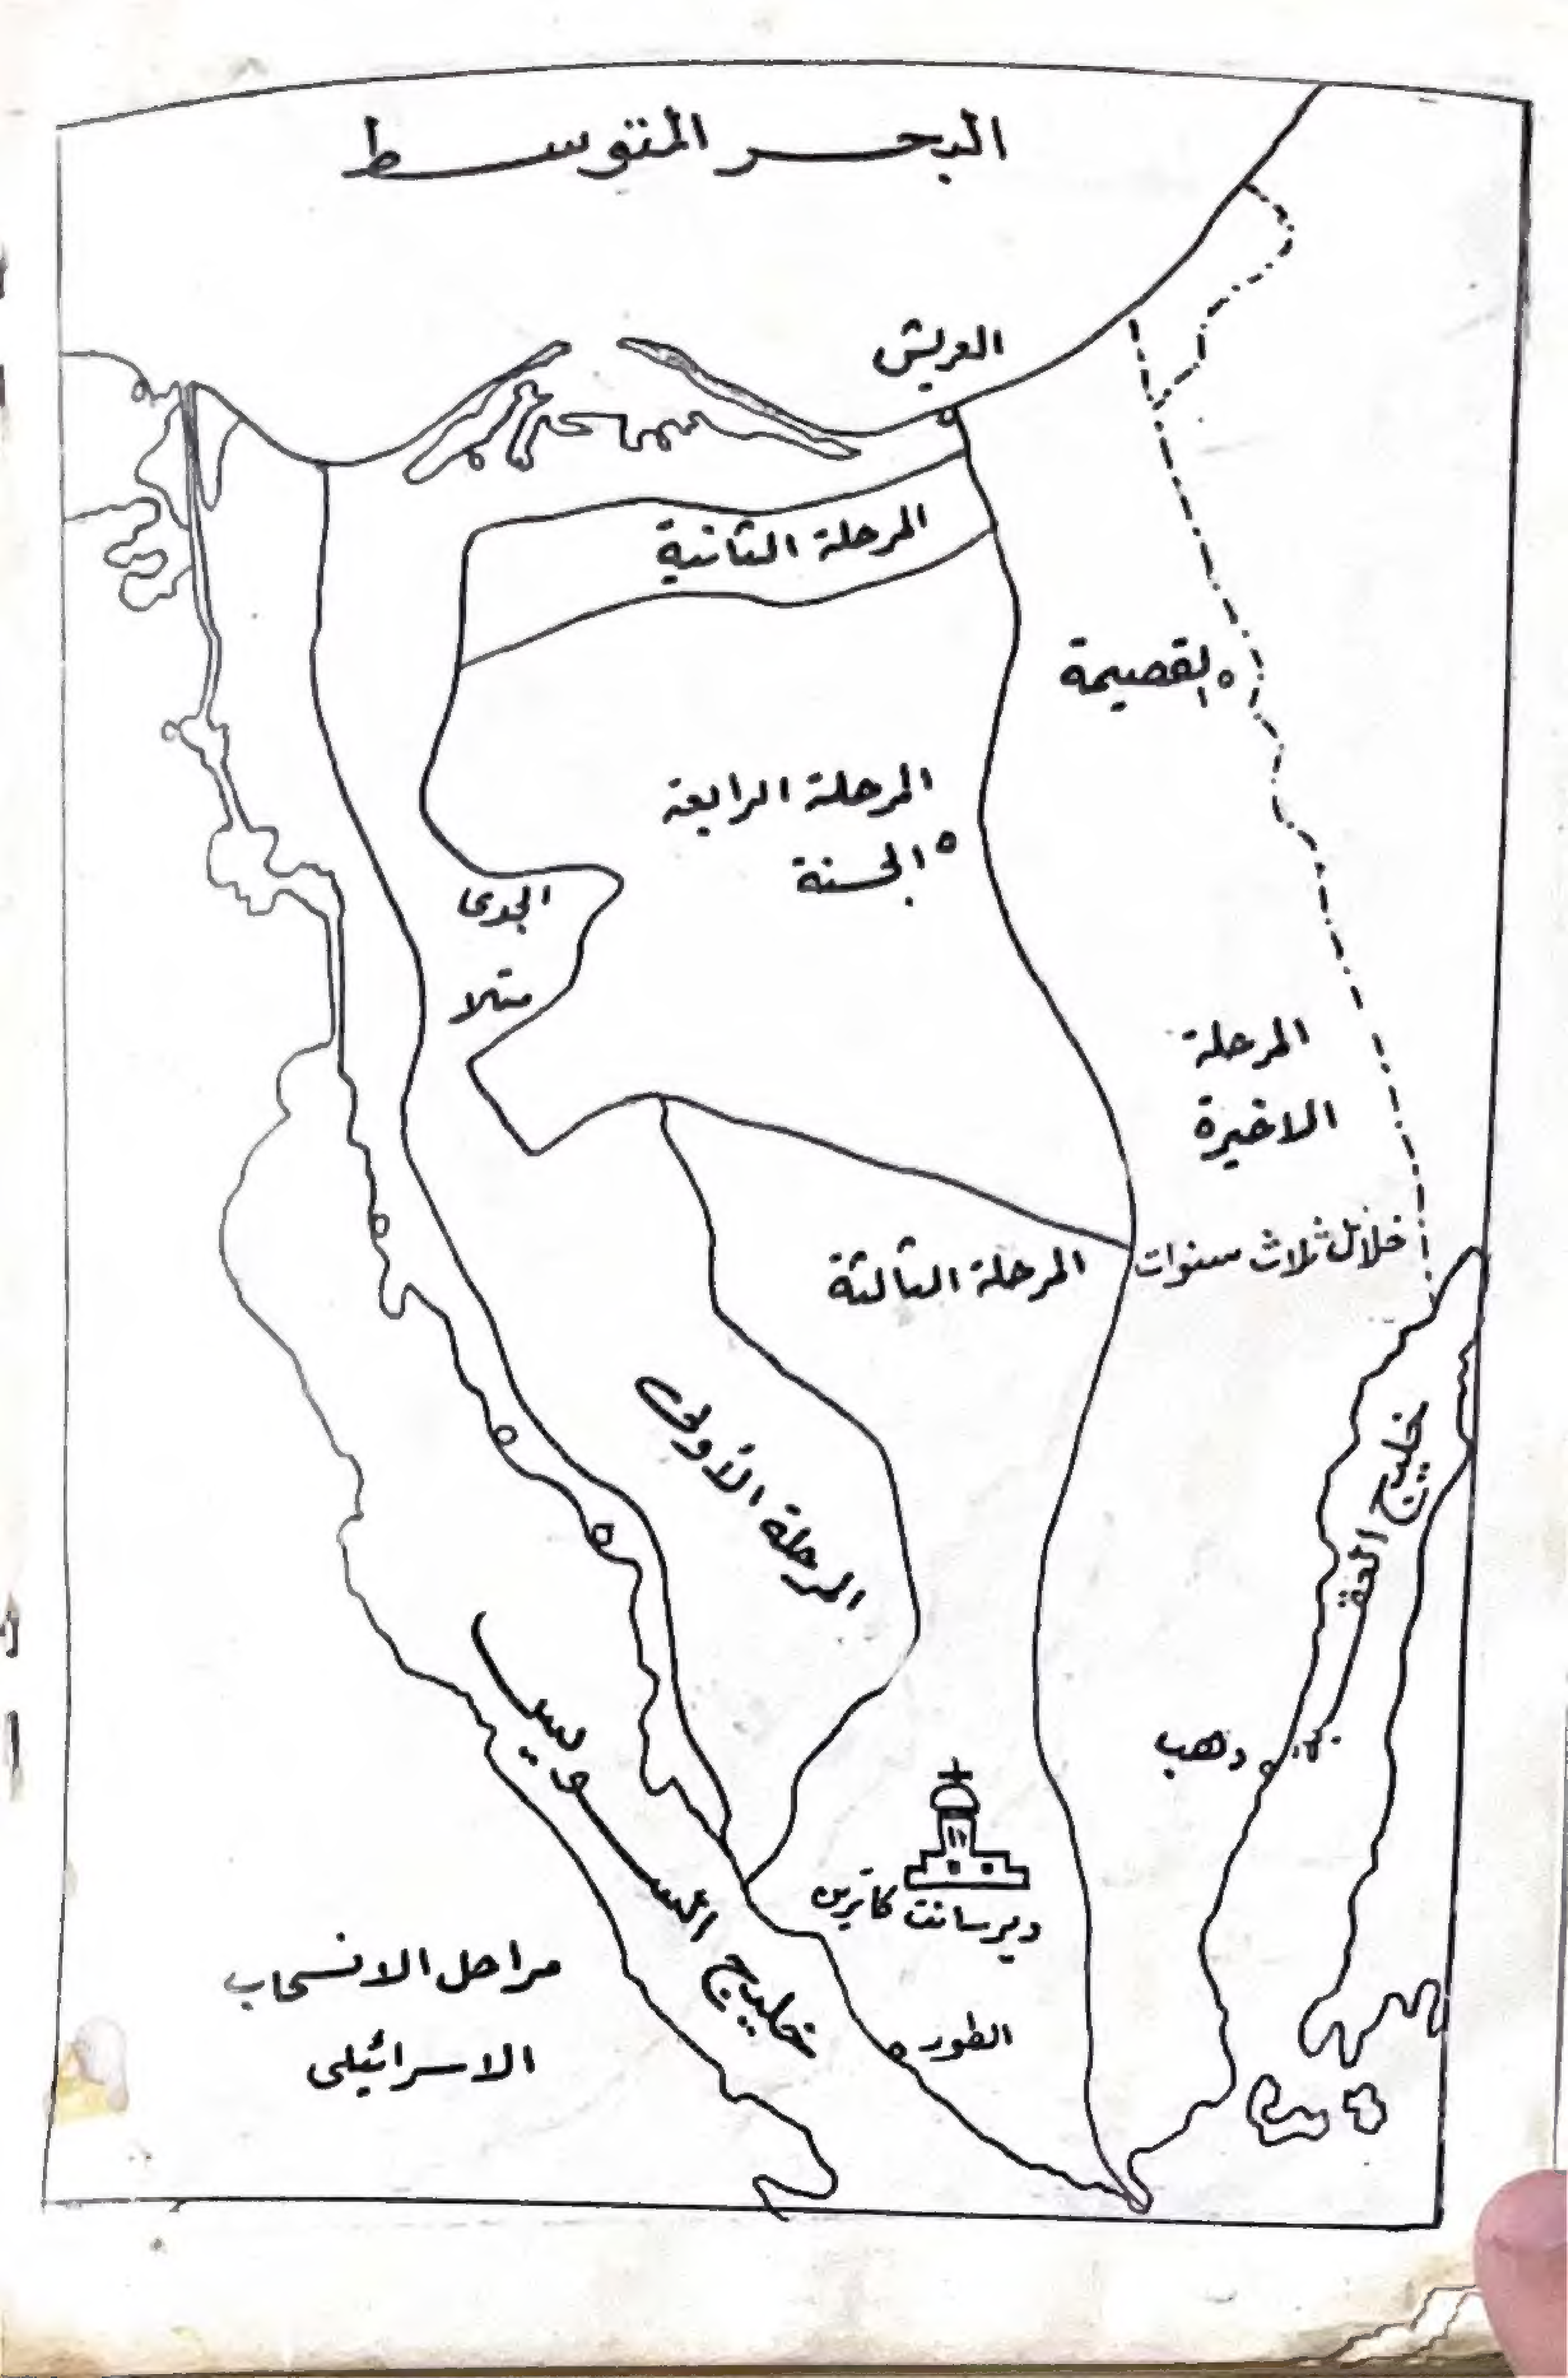 البحر المتوسط
العريش
المرحلة الثانية
القصيمة
المرحلة الرابعة
الحسنة
الجدى
متلا
المرحلة
الاخيرة
خلال ثلاث سنوات
المرحلة الثالثة
المرحلة الأولى
خليج العقبة
خليج السويس
دهب
دير سانت كاترين
الطور
مراحل الانسحاب
الاسرائيلى